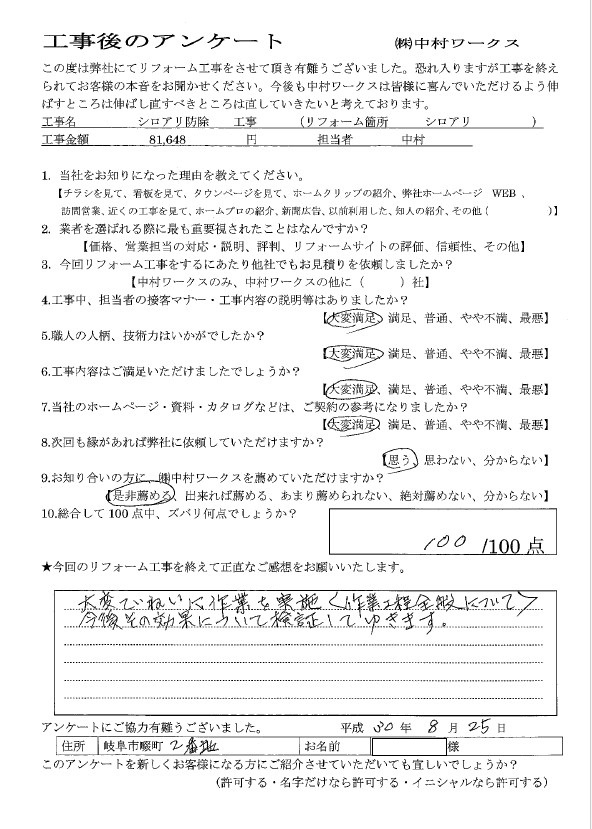 工事後のアンケート ㈱中村ワークス
この度は弊社にてリフォーム工事をさせて頂き有難うございました。恐れ入りますが工事を終え
られてお客様の本音をお聞かせください。今後も中村ワークスは皆様に喜んでいただけるよう伸
ばすところは伸ばし直すべきところは直していきたいと考えております。
工事名 シロアリ防除 工事 (リフォーム箇所 シロアリ )
工事金額 81,648 円 担当者 中村
1. 当社をお知りになった理由を教えてください。
【チラシを見て、看板を見て、タウンページを見て、ホームクリップの紹介、弊社ホームページ WEB 、
訪問営業、近くの工事を見て、ホームプロの紹介、新聞広告、以前利用した、知人の紹介、その他 ( )】
2. 業者を選ばれる際に最も重要視されたことはなんですか？
【価格、営業担当の対応・説明、評判、リフォームサイトの評価、信頼性、その他】
3. 今回リフォーム工事をするにあたり他社でもお見積りを依頼しましたか？
【中村ワークスのみ、中村ワークスの他に ( ) 社】
4.工事中、担当者の接客マナー・工事内容の説明等はありましたか？
【大変満足、満足、普通、やや不満、最悪】
5.職人の人柄、技術力はいかがでしたか？
【大変満足、満足、普通、やや不満、最悪】
6.工事内容はご満足いただけましたでしょうか？
【大変満足、満足、普通、やや不満、最悪】
7.当社のホームページ・資料・カタログなどは、ご契約の参考になりましたか？
【大変満足、満足、普通、やや不満、最悪】
8.次回も縁があれば弊社に依頼していただけますか？
【思う、思わない、分からない】
9.お知り合いの方に、㈱中村ワークスを薦めていただけますか？
【是非薦める、出来れば薦める、あまり薦められない、絶対薦めない、分からない】
10.総合して 100 点中、ズバリ何点でしょうか？
100 /100 点
★今回のリフォーム工事を終えて正直なご感想をお願いいたします。
大変ていねいに作業を実施〈作業工程全般について〉
今後その効果について検証してゆきます。
アンケートにご協力有難うございました。 平成 30 年 8 月 25 日
住所 岐阜市畷町 2番地 お名前 様
このアンケートを新しくお客様になる方にご紹介させていただいても宜しいでしょうか？
(許可する・名字だけなら許可する・イニシャルなら許可する)